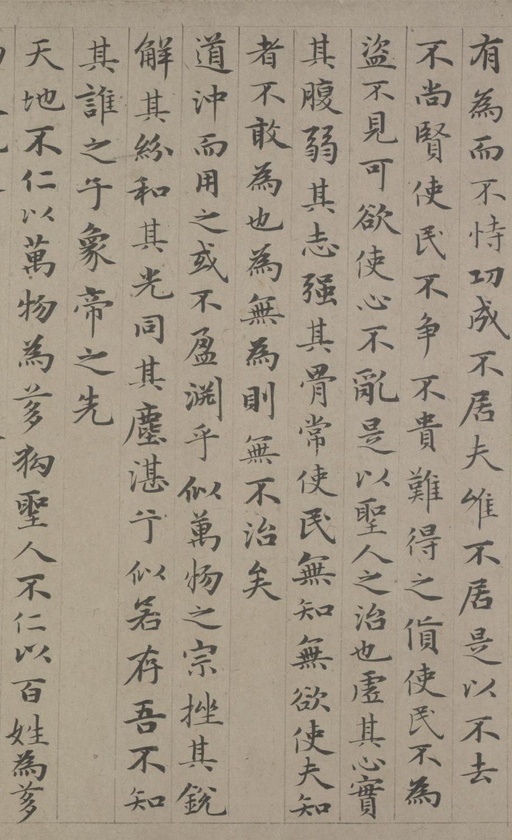 有為而不恃功成不居夫唯不居是以不去
不尚賢使民不争不貴難得之貨使民不為
盜不見可欲使心不亂是以聖人之治也虛其心實
其腹弱其志强其骨常使民無知無欲使夫知
者不敢為也為無為則無不治矣
道沖而用之或不盈淵乎似萬物之宗挫其銳
解其紛和其光同其塵湛乎似若存吾不知
其誰之乎象帝之先
天地不仁以萬物為芻狗聖人不仁以百姓為芻